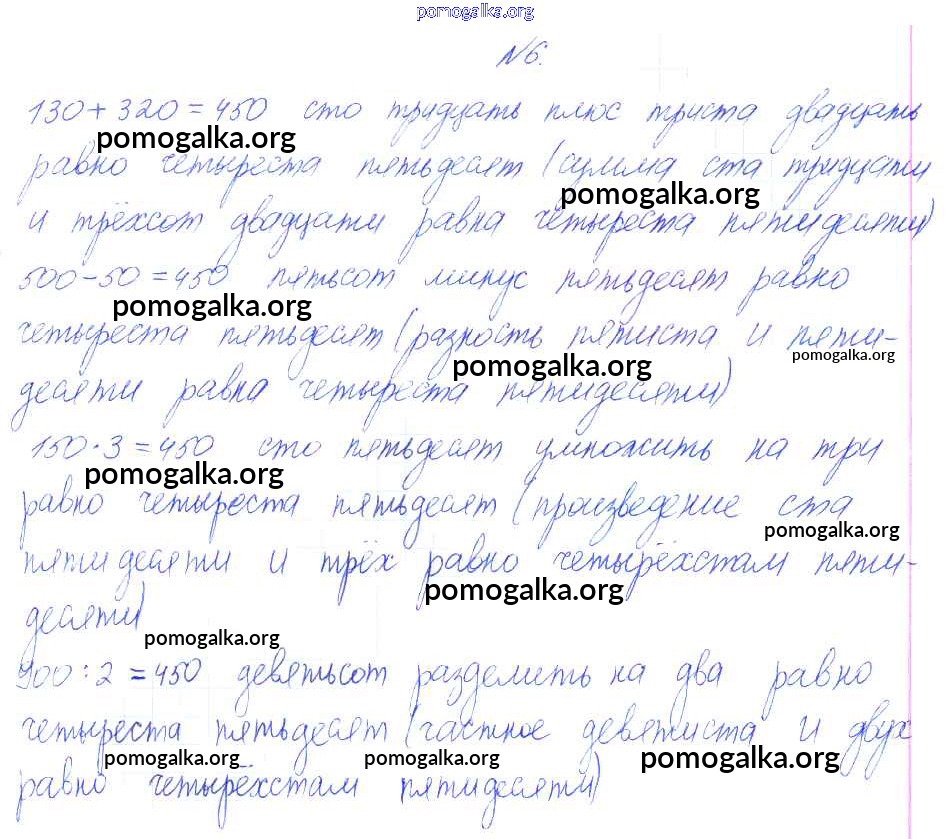 pomogalka.org
№6.
130 + 320 = 450 сто тридцать плюс триста двадцать
pomogalka.org
равно четыреста пятьдесят (сумма ста тридцати
pomogalka.org
и трёхсот двадцати равна четыреста пятидесяти)
500 - 50 = 450 пятьсот минус пятьдесят равно
pomogalka.org
четыреста пятьдесят (разность пятиста и пяти-
pomogalka.org
pomogalka.org
десяти равна четыреста пятидесяти)
150 · 3 = 450 сто пятьдесят умножить на три
pomogalka.org
равно четыреста пятьдесят (произведение ста
pomogalka.org
пяти десяти и трёх равно четырёхстам пяти-
pomogalka.org
десяти)
pomogalka.org
900 : 2 = 450 девятьсот разделить на два равно
четыреста пятьдесят (частное девятиста и двух
pomogalka.org pomogalka.org pomogalka.org
равно четырёхстам пятидесяти)